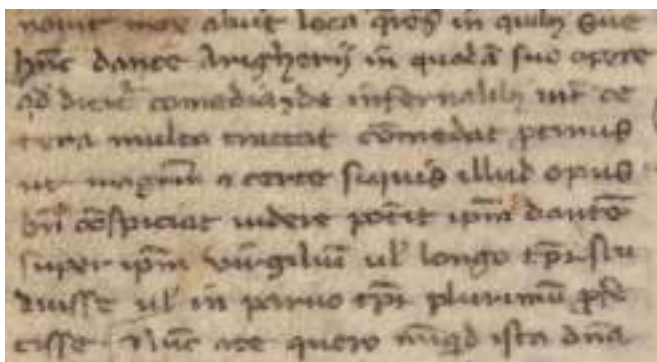 loca in quibꝫ
hūc dante Arigherij in quodā suo opere
qđ dicit᷑ comedia ⁊ de infernalibꝫ int̄ ce
tera multa tractat cōmendat ptinus
ut magr̄m ⁊ certe siquis illud opus
bn̄ cōspiciat uidere pot̄it ip̄m dantē
super ip̄m uirgiliū ul' longo tp̄r stu
duisse ul' in paruo tp̄r plurimū ꝓfe
cisse. Nūc a te quero nūqd ista dn̄a